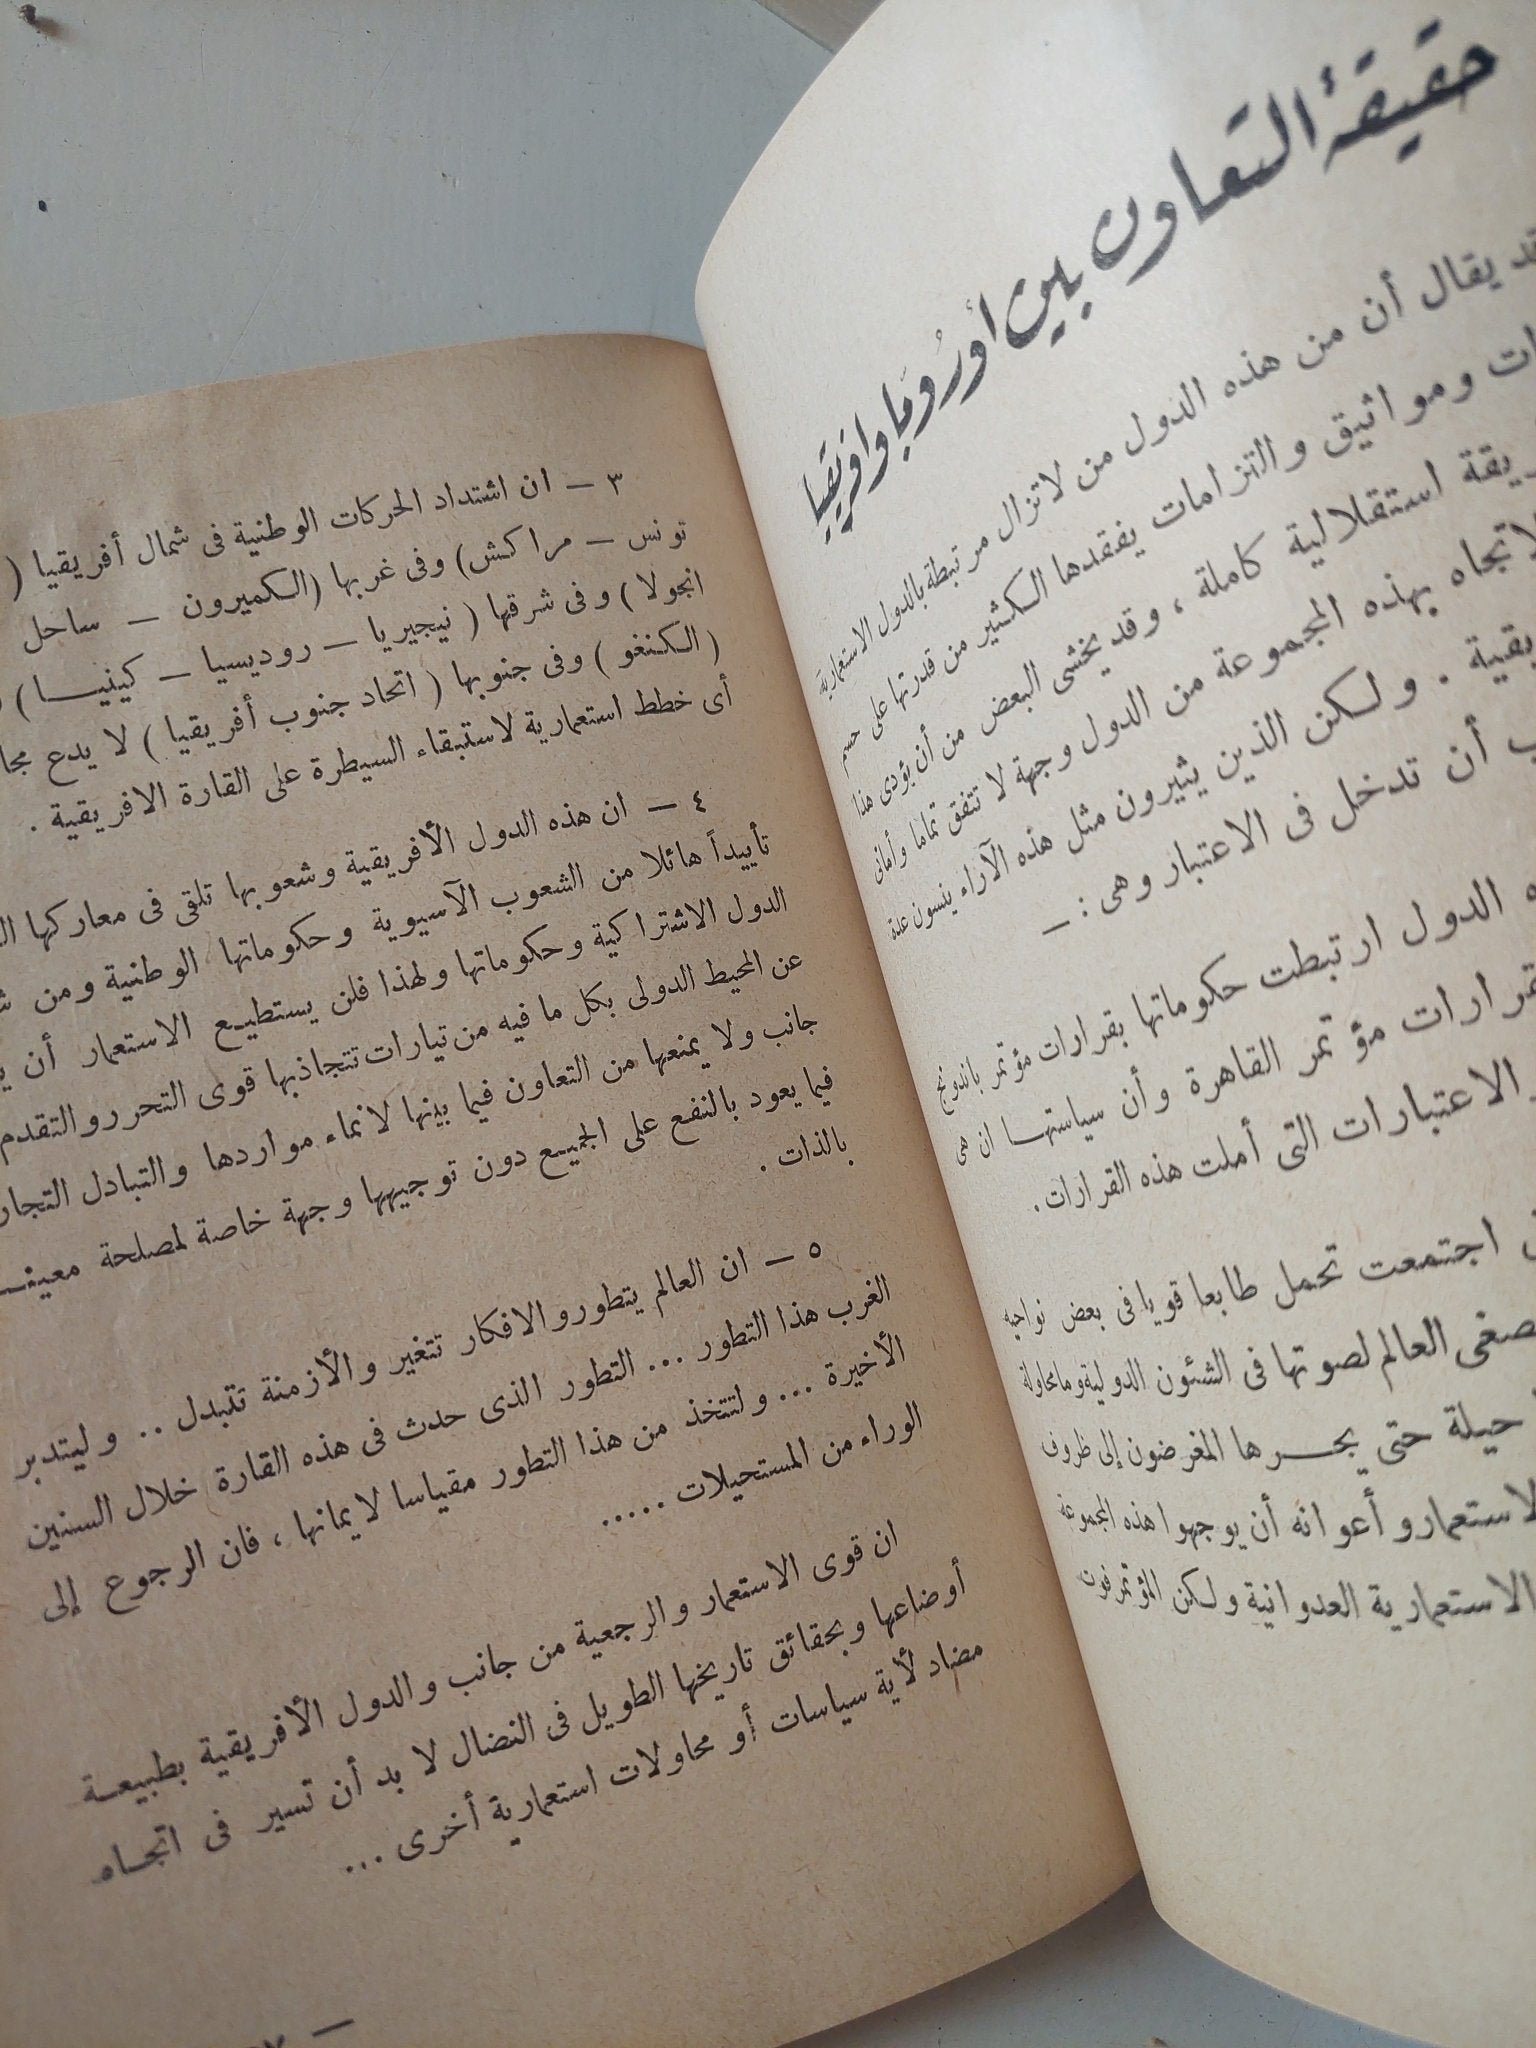 حقيقة التعاون بين أوروبا وافريقيا
يقال أن من هذه الدول من لا تزال مرتبطة بالدول الاستعمارية
ومواثيق والتزامات يفقدها الكثير من قدرتها على حسم
استقلالية كاملة ، وقد يخشى البعض من أن يؤدى هذا
بهذه المجموعة من الدول وجهة لا تتفق تماما وأمانى
. ولكن الذين يثيرون مثل هذه الآراء ينسون عدة
أن تدخل فى الاعتبار وهى : —
الدول ارتبطت حكوماتها بقرارات مؤتمر باندونج
مؤتمر القاهرة وأن سياستها ان هى
الاعتبارات التى أملت هذه القرارات .
اجتمعت تحمل طابعا قويا فى بعض نواحيه
العالم لصوتها فى الشئون الدولية وما محاولة
حيلة حتى يجرها المغرضون إلى ظروف
وأعوانه أن يوجهوا هذه المجموعة
الاستعمارية العدوانية ولكن المؤتمرون
٣ — ان اشتداد الحركات الوطنية فى شمال أفريقيا (
تونس — مراكش) وفى غربها (الكميرون — ساحل
انجولا ) وفى شرقها ( نيجيريا — روديسيا — كينيا )
( الكنغو ) وفى جنوبها ( اتحاد جنوب أفريقيا ) لا يدع
أى خطط استعمارية لاستبقاء السيطرة على القارة الافريقية .
٤ — ان هذه الدول الأفريقية وشعوبها تلقى فى معاركها
تأييداً هائلا من الشعوب الآسيوية وحكوماتها الوطنية ومن
الدول الاشتراكية وحكوماتها ولهذا فلن يستطيع الاستعمار أن
عن المحيط الدولى بكل ما فيه من تيارات تتجاذبها قوى التحرر والتقدم
جانب ولا يمنعها من التعاون فيما بينها لانماء مواردها والتبادل
فيما يعود بالنفع على الجميع دون توجيهها وجهة خاصة لمصلحة
بالذات .
٥ — ان العالم يتطور والافكار تتغير والأزمنة تتبدل .. وليتدبر
الغرب هذا التطور ... التطور الذى حدث فى هذه القارة خلال السنين
الأخيرة ... ولتتخذ من هذا التطور مقياسا لايمانها ، فان الرجوع إلى
الوراء من المستحيلات .....
ان قوى الاستعمار والرجعية من جانب والدول الأفريقية بطبيعة
أوضاعها وبحقائق تاريخها الطويل فى النضال لا بد أن تسير فى اتجاه
مضاد لأية سياسات أو محاولات استعمارية أخرى ...